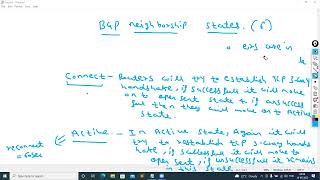 BGP neighborship states. (6)
ers are in
Connect - Routers will try to establish TCP 3-way
handshake, if successful it will move
on to open sent state & if un
suc
ful then they will move on to Active
state.
Active - In Active state, Again it will
try to establish TCP 3-way hands
hake, if successful it will move to
open sent, if unsuccessful it remains
in this state
reconnect